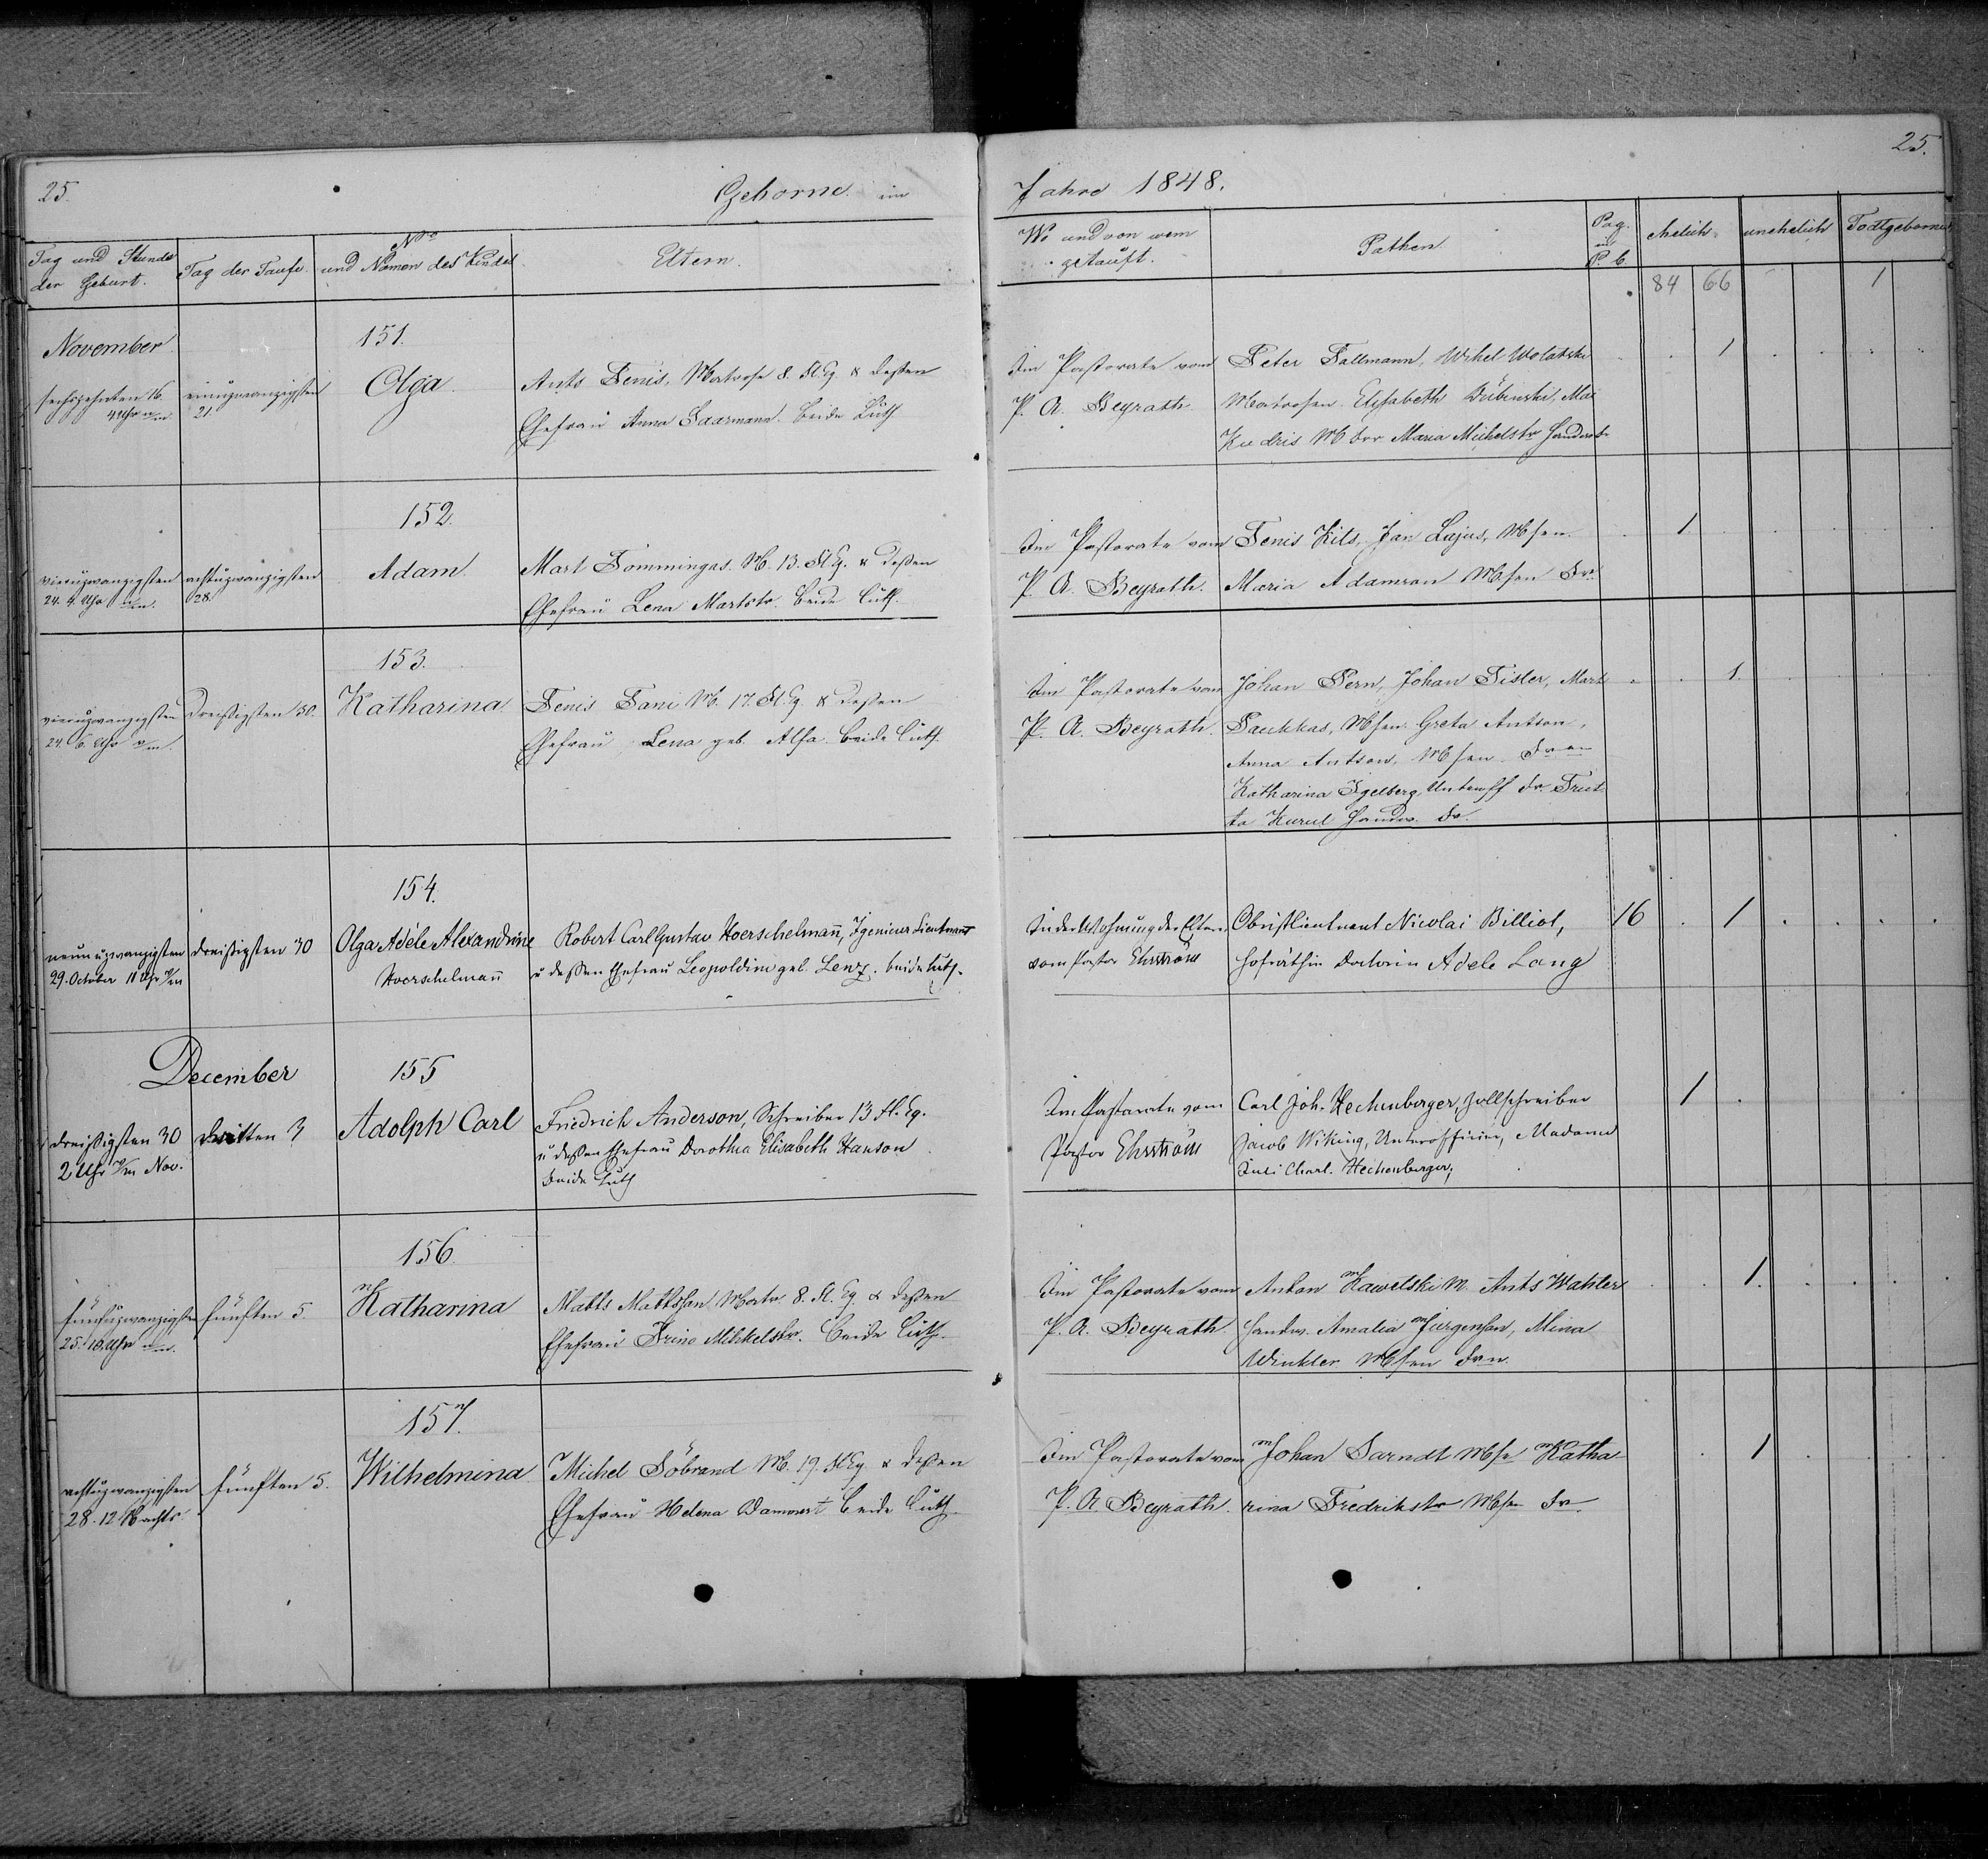 25.
Geborne im
Jahre 1848.
25.
Tag und Stunde der Geburt.
Tag der Taufe.
No und Namen des Kindes
Eltern.
Wo und von wem getauft.
Pathen.
Pag. im P. b.
ehelich
unehelich
Todtgeborne
84 66
1
November
sechszehnten 16.
4 Uhr n/m
einundzwanzigsten
21
151.
Olga
Ants Tenis, Matrose 8. Fl. Eq. & dessen
Ehefrau Anna Saarmann. beide Luth
Im Pastorate vom
P. A. Beyrath.
Peter Tallmann, Mihel
Matrosen. Elisabeth, Mai
Kudris Mtr Maria Michelstr
1
vierundzwanzigsten
24. 4. Uhr n/m.
achtundzwanzigsten
28.
152.
Adam.
Mart Tommingas. M. 13. Fl Eq. & dessen
Ehefrau Lena Martstr. beide luth.
Im Pastorate vom
P. A. Beyrath.
Tenis Kils, Jan Lajus, Msen.
Maria Adamson Msen Fr.
1.
vierundzwanzigsten
24. 6. Uhr n/m.
dreissigsten 30.
153.
Katharina
Tenis Tani M. 17. Fl. Eq & dessen
Ehefrau Lena geb. Alfa. beide luth.
Im Pastorate vom
P. A. Beyrath.
Johan Pern, Johan Tisler, Mart
Paukkas, Msen. Greta Antson,
Anna Antson, Msen Fr en
Katharina Igelberg, Unteroff Fr. Triet
ta Kurul Handw. Fr.
1.
neunundzwanzigsten
29. October 11 Uhr
dreissigsten 30
154.
Olga Adéle Alexandrine
Hoerschelman̅
Robert Carl Gustav Hoerschelman̅, Igenieur Lieutnant
u dessen Ehefrau Leopoldine geb. Lenz. beide luth.
In der Wohnung der Eltern
vom Pastor Ehrström
Obristlieutnant Nicolai Billiot,
Hofräthin Doctorin Adele Lang
16
1
December
dreissigsten 30
2 Uhr Nov.
dritten 3
155
Adolph Carl
Friedrich Anderson, Schreiber 13 Fl. Eq.
u dessen Ehefrau Dorothea Elisabeth Hanson
beide luth
Im Pastorate vom
Pastor Ehrström
Carl Joh. Hechenberger, Zollschreiber
Jacob Wiking, Unterofficier, Madame
Juli Charl. Hechenberger,
1
fünfundzwanzigsten
25. 10. Uhr
fünften 5.
156.
Katharina
Matts Mattssen Matr. 8. Fl. Eq & dessen
Ehefrau Trino Mihkelstr. beide luth.
Im Pastorate vom
P. A. Beyrath.
Anton Kawelski M. Ants Wahler
Handw. Amalia Jürgensen, Mina
Winkler Msen Frn.
1.
achtundzwanzigsten
28. 12. Nachts.
fünften 5.
157.
Wilhelmina
Michel Söbrand M. 19. Fl Eq & dessen
Ehefrau Helena Dammert beide luth.
Im Pastorate vom
P. A. Beyrath.
Johan Sarndt Mse Katha
rina Fredrikstr Msen Fr.
1